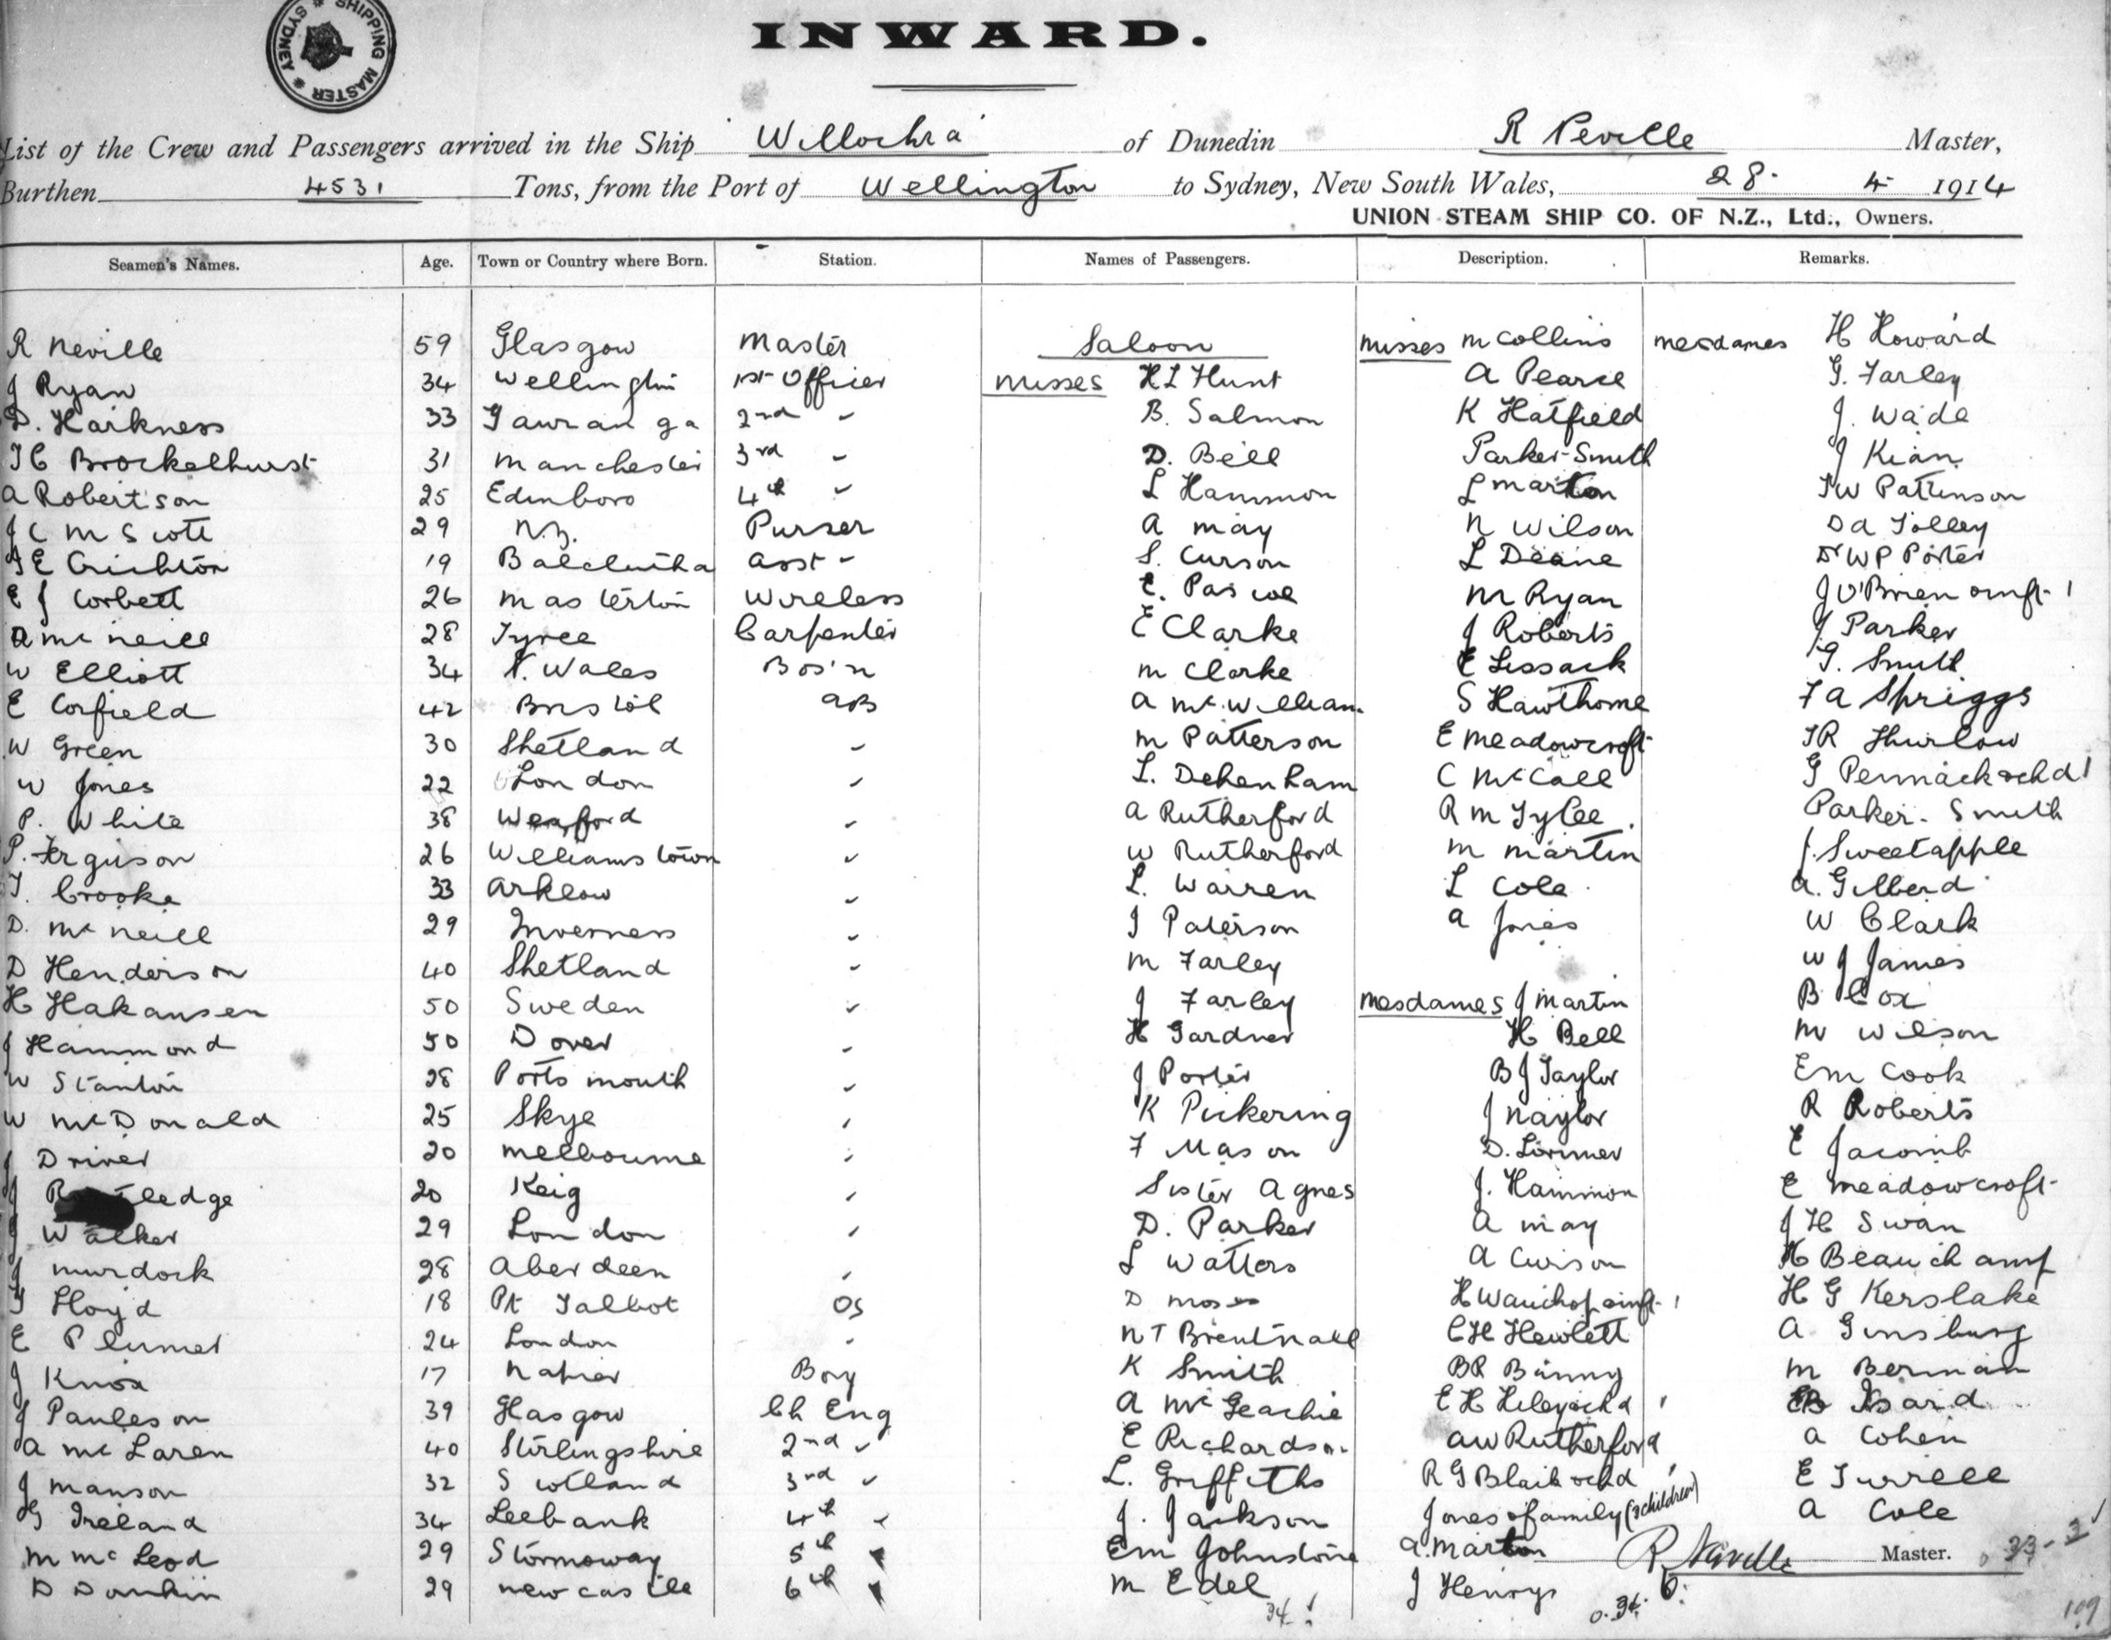 SHIPPING MASTER * SYDNEY *
INWARD.
List of the Crew and Passengers arrived in the Ship Willochra of Dunedin R Neville Master,
Burthen 4531 Tons, from the Port of Wellington to Sydney, New South Wales, 28. 4 1914
UNION STEAM SHIP CO. OF N.Z., Ltd., Owners.
Seamen's Names. Age. Town or Country where Born. Station. Names of Passengers. Description. Remarks.
R Neville 59 Glasgow Master Saloon misses M Collins mesdames H Howard
J Ryan 34 Wellington 1st Officer misses H L Hunt A Pearce G. Farley
D. Harkness 33 Tauranga 2nd " B. Salmon K Hatfield J. Wade
T C Brockelhurst 31 Manchester 3rd " D. Bell Parker-Smith J Kian
A Robertson 25 Edinboro 4th " L Hammon L Marton TW Pattinson
J C M Scott 29 N.Z. Purser A May N Wilson D A Tolley
F E Crichton 19 Balclutha Asst " S. Curson L Deane Dr W P Porter
E J Corbett 26 Masterton Wireless E. Pascoe M Ryan J O'Brien & inft. 1
A McNeill 28 Tyree Carpenter E Clarke J Roberts J Parker
W Elliott 34 N. Wales Bos'n M Clarke E Lissack G. Smith
E Corfield 42 Bristol AB A McWilliam S Hawthorne F A Spriggs
W Green 30 Shetland " M Patterson E Meadowcroft TR Thurlow
W Jones 22 London " L. Debenham C McCall G Pennack & chd 1
P. White 38 Wexford " A Rutherford R M Tylee. Parker-Smith
P. Ferguson 26 Williamstown " W Rutherford M Martin J. Sweetapple
T. Crooke 33 Arklow " L. Warren L Cole A. Gilberd
D. McNeill 29 Inverness " J Paterson A Jones W Clark
D Henderson 40 Shetland " M Farley W J James
H Hakansen 50 Sweden " J Farley mesdames J Martin B Cox
J Hammond 50 Dover " H Gardner H Bell M Wilson
W Stanton 28 Portsmouth " J Porter B J Taylor EM Cook
W McDonald 25 Skye " K Pickering J Naylor R Roberts
J Driver 20 Melbourne " F Mason D. Lorimer E Jacomb
J 20 Keig " Sister Agnes J. Hammon E Meadowcroft
J Walker 29 London " D. Parker A May J H Swan
J Murdock 28 Aberdeen " L Watters A Curson H Beauchamp
T Lloyd 18 Pt Talbot OS D Moses H Wauchop & inft. 1 H G Kerslake
E Plumer 24 London " N T Brentnall C H Hewlett A Ginsburg
J Knox 17 Napier Boy K Smith BR Binny M Berman
J Pauleson 39 Glasgow Ch Eng A McGeachie E H Hiley & chd 1 Isard
A McLaren 40 Stirlingshire 2nd " E Richardson AW Rutherford A Cohen
J Manson 32 Scotland 3rd " L. Griffiths R G Blair & chd 1 E Turrell
G Ireland 34 Leebank 4th " J. Jackson Jones & family (3 children) A Cole
M McLeod 29 Stornoway 5th " EM Johnstone A. Marton R Neville Master. 33 - 3
D Dunkin 29 Newcastle 6th " M Edel J Henrys
34 0. 34. 6. 109